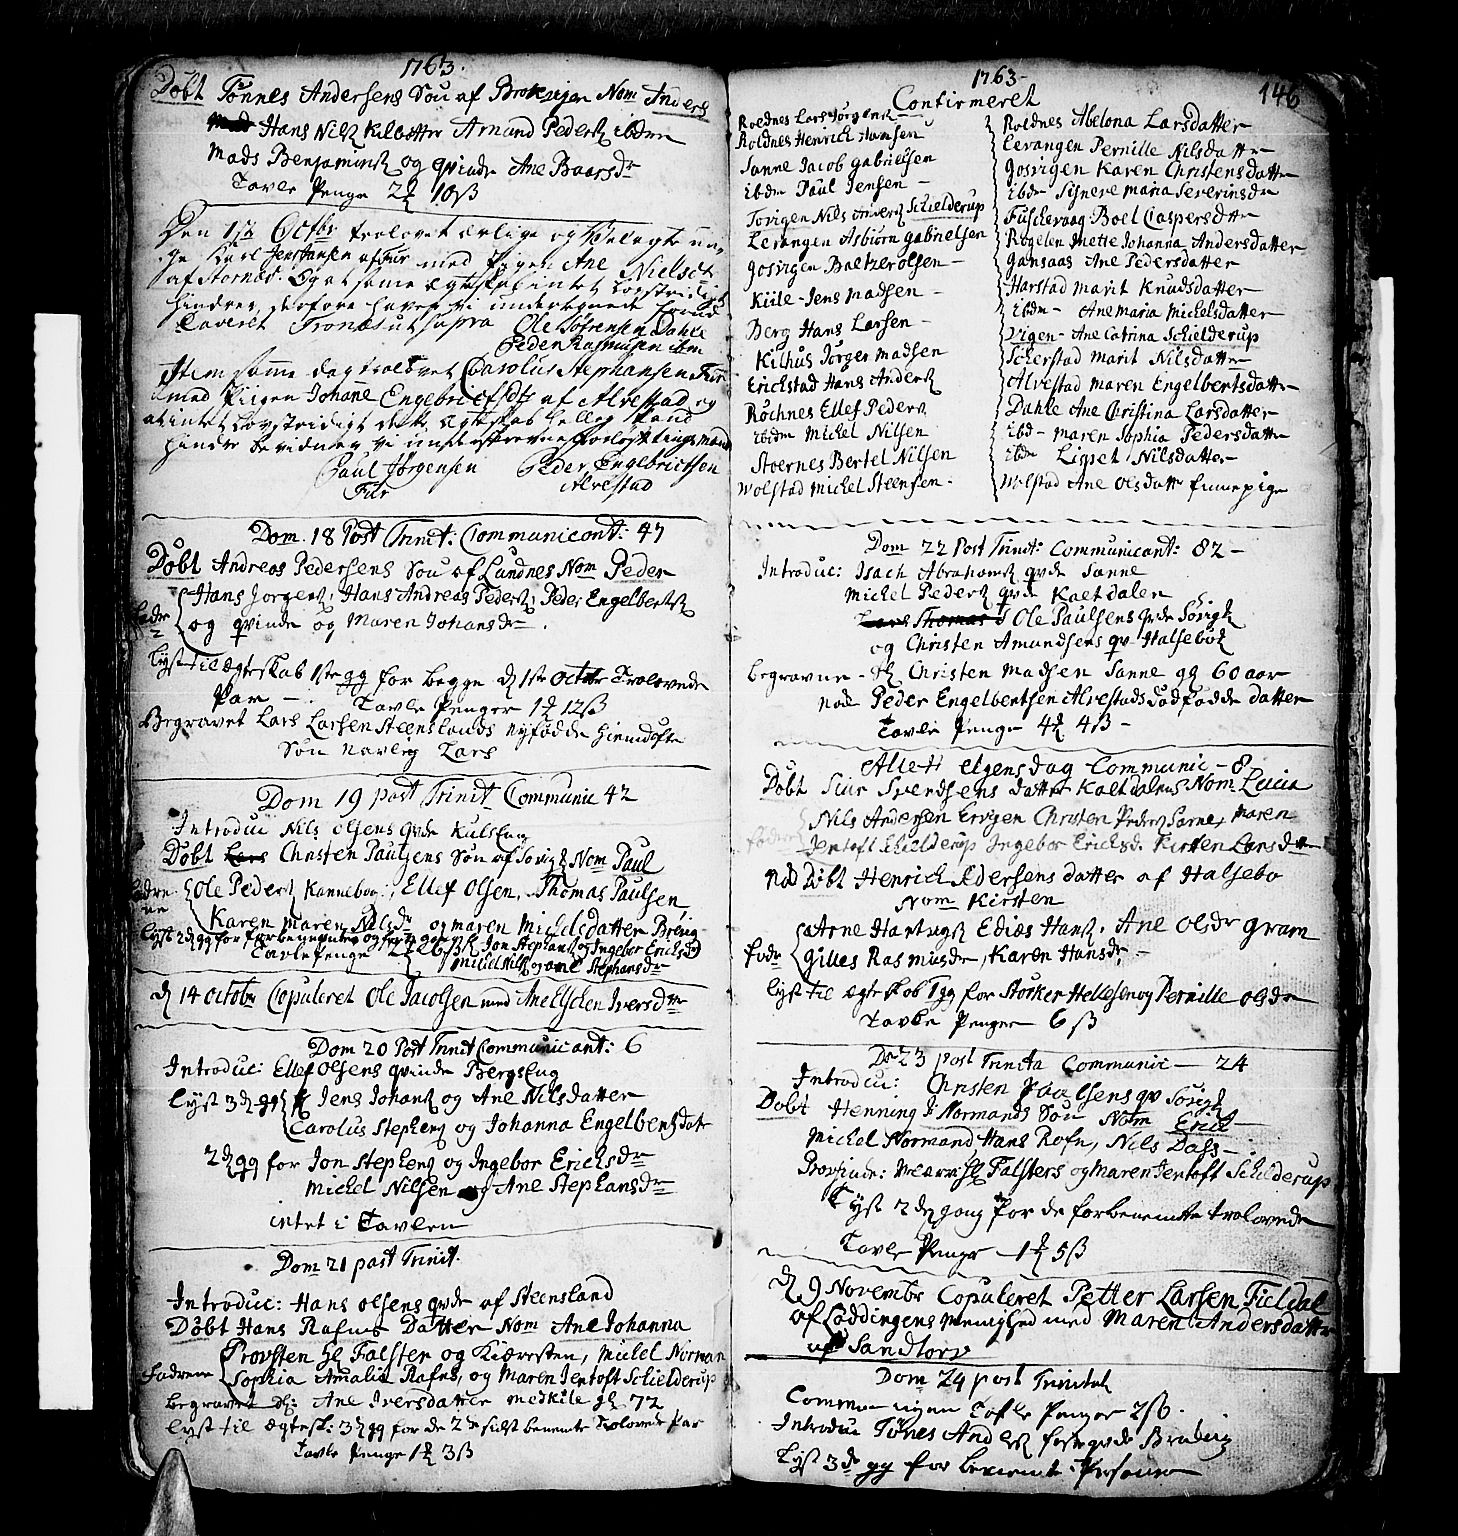 1763.
Døbt Tønnes Andersens Søn af Nom Anders
Hans Nilß Amund Pederß ibdm
Mads Benjaminß og qvinde Ane Baarsdr
Tavle Penge 2 10 ß
Den 1ste Octbr trolovet ærlige og
med Pigen Ane Nielsdr
af Stornæs
hindrer, derfore caverer vi underteegnede
Caveret Tronæs ut supra Ole Sørensen Dahle
Peder Rasmusen ibm
Item samme dag trolovet Carolus Stephansen Fur
med Piigen Johane Engebrictsdtr af Alvestad og
at intet Lovstridigt dette Ægteskab
hinder bevidner vi underskrevne
Paul Jørgensen Peder Engebrictsen
Fur Alvestad
Dom. 18 Post Trinit: Communicant: 47
Døbt Andreas Pedersens Søn af Lundnes Nom Peder
Hans Jorgenß, Hans Andreas Pederß, Peder Engelbertß
og qvinde og Maren Johansdr.
Lyst til ægteskab 1ste gg for begge d 1ste Octbr Trolovede
Par — Tavle Penger 1 12 ß
Begravet Lars Larsen Steenslands nyfødde hiemdøfte
Søn navlig Lars
Dom 19 post Trinit Communic 42
Introduc Nils Olsens qvde Kulseng
Døbt Christen Paulsens Søn af Sørigß Nom Paul
Ole Pederß Kanneboe, Ellef Olsen, Thomas Paulsen
Karen Maren Nilsdr og Maren Michelsdatter Breivig
Lyst 2 d gg for forbenevnte og første gang for Jon Stephanß og Ingebor Ericksd
Tavle Penge Michel Nilß og Ane Stephansdr
d 14 Octobr Copuleret Ole Jacobsen med Ane Elschen Iversdtr
Dom 20 Post Trinit Communicant: 6
Introduc: Ellef Olsens qvinde Bergseng
Lyst 3 d gg Jens Johanß og Ane Nilsdatter
Carolus Stephenß og Johanna Engelbertsdatr
2 d gg for Jon Stephenß og Ingebor Ericksdr
Michel Nilsen og Ane Stephansdr
intet i Tavlen
Dom 21 past Trinit.
Introduc: Hans Olsens qvde af Steensland
Døbt Hans Rafns Datter Nom Ane Johanna
Provsten Hl Falster og Kiæresten, Michel Norman
Fadrene Sophia Amalia Rafns, og Maren Jentoft Schielderup
begravet Ane Iversdatter Medkile 72
Lyst til ægtesk: 3 d gg for de 2de sidst benevnte Trolovede Par
Tavle Penge 1 3 ß
1763-
146
Confirmeret
Roldnes Lars Jørgenß
Roldnes Henrich Hansen
Sanne Jacob Gabrielsen
ibdm Paul Jensen —
Torigen Nils Anderß Schielderup
Levangen Asbiørn Gabrielsen
Gosvigen Baltzer Olsen —
Kiile - Jens Madsen —
Berg Hans Larsen —
Kilhus Jørger Madsen
Erickstad Hans Anderß
Røchnes Ellef Peders
ibdm Michel Nilsen
Stoernes Bertel Nilsen
Wolstad Michel Steensen -
Roldnes Abelona Larsdatter
Levangen Pernille Nilsdatter
Gosvigen Karen Christensdatter
ibdm Signere Maria Severinsdr
Fuskevaag Boel Caspersdtter
Rogelen Mette Johanna Andersdatter
Gansaas Ane Pedersdatter
Harstad Marit Knudsdatter
ibdm - Ane Maria Michelsdatter
Vigen - Ane Catrina Schielderup
Scherstad Marit Nilsdatter
Alvestad Maren Engelbertsdatter
Dahle Ane Christina Larsdatter
ibd - Maren Sophia Pedersdatter
ibdm Lisset Nilsdatter
Wolstad Ane Olsdattr finnepige
Dom 22 Post Trinit: Communicant: 82 -
Introduc: Isach Abrahamß qvde Sanne
Michel Pederß qvde Kaetdalen
Ole Paulsens qvde Sørigß
og Christen Amundsens qv Halsebøe
begravne - Christen Madsen Sanne gl 60 aar
Peder Engelbertsen Alvestads dødfødde datter
Tavle Penge 4 4 ß -
Alle Helgensdag Communic - 8
Døbt Siur Svendsens datter Kaetdalens Nom Lucia
Nils Andersen Ervigen Christen Pederß Sanne, Maren
Jentoft Schielderup Ingebor Ericksd. Kirsten Larsdtter
Døbt Henrich Pedersens datter af Halsebo
Nom Kirsten
Arne Hartvigß Edias Hanß. Ane Olsdr Gram
Gilles Rasmusdr, Karen Hansdr —
Lyst til ægteskab 1 gg for Storker Hellesen og Pernille Olsdr
Tavle Penger 6 ß
D 23 post Trinita Communic — 24
Introduc: Christen Paalsens qv Sørigß
Døbt Henning J: Normands Søn Nom Erick
Michel Normand, Hans Rafn, Nils Dass —
Provstinde: Falsters og Maren Jentoft Schielderup
Lyst 2 den gang for de forbenemte trolovede
Tavle Penge — 1 5 ß
d 9 Novembr Copuleret Petter Larsen Fieldal
af Løddingens Menighed med Maren Andersdatter
af Sandtorv
Dom 24 post Trinitat
Commun ingen Tafle Penger 2 ß.
Introduc Tønes Anderß
Lyst 3 de gg for benemte Persouner